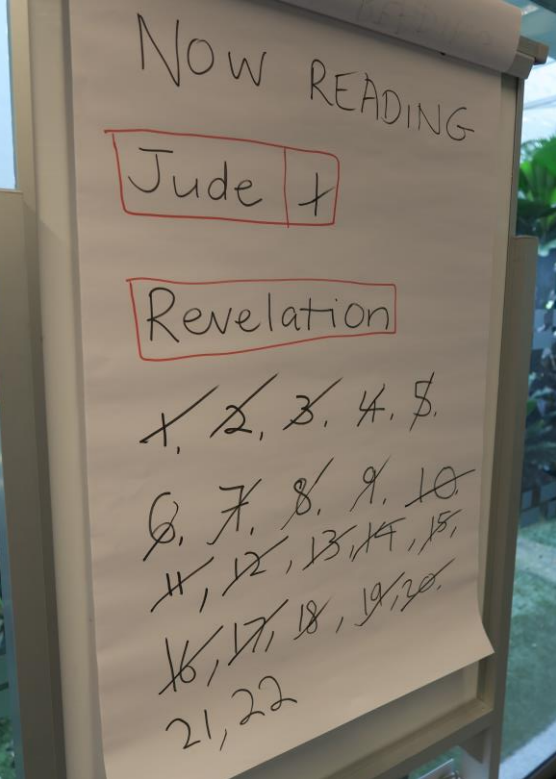 NOW READING
Jude 1
Revelation
1, 2, 3, 4, 5,
6, 7, 8, 9, 10,
11, 12, 13, 14, 15,
16, 17, 18, 19, 20,
21, 22